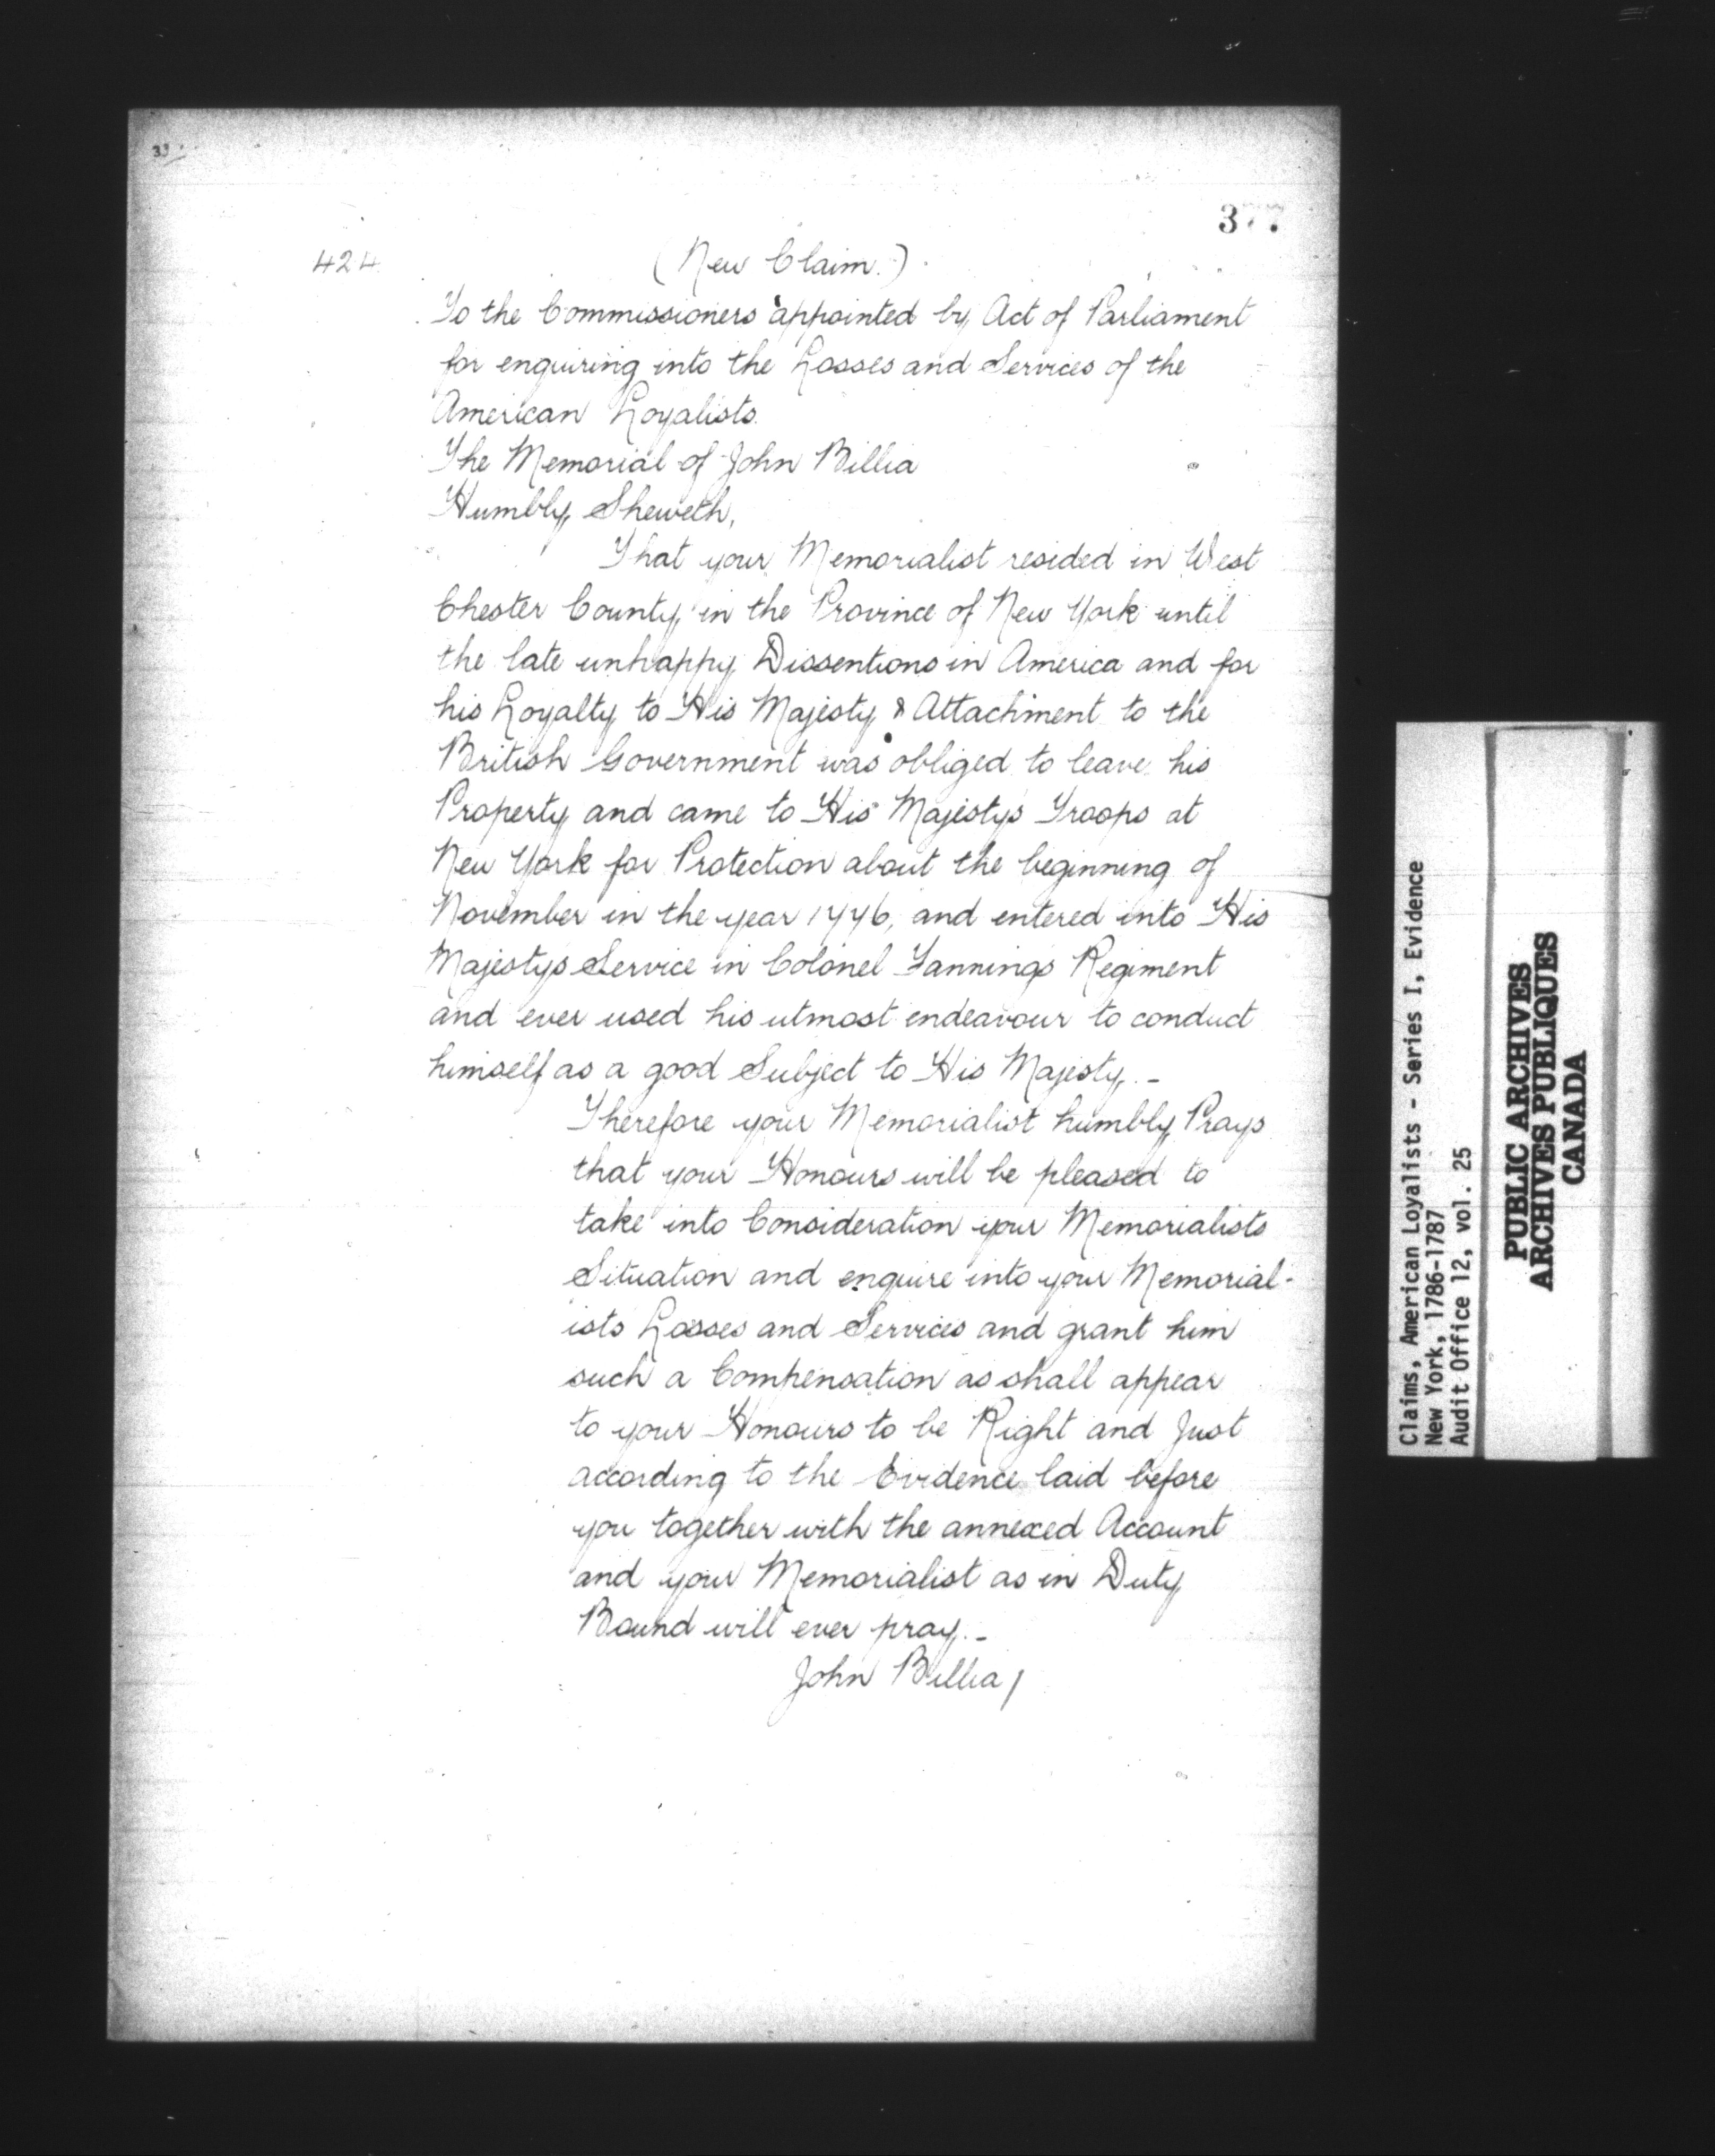 33
377
424
(New Claim.)
To the Commissioners appointed by Act of Parliament
for enquiring into the Losses and Services of the
American Loyalists.
The Memorial of John Billia
Humbly Sheweth,
That your Memorialist resided in West
Chester County in the Province of New York until
the late unhappy Dissentions in America and for
his Loyalty to His Majesty & Attachment to the
British Government was obliged to leave his
Property and came to His Majestys Troops at
New York for Protection about the beginning of
November in the year 1776, and entered into His
Majestys Service in Colonel Fannings Regiment
and ever used his utmost endeavour to conduct
himself as a good Subject to His Majesty. -
Therefore your Memorialist humbly Prays
that your Honours will be pleased to
take into Consideration your Memorialists
Situation and enquire into your Memorial-
ists Losses and Services and grant him
such a Compensation as shall appear
to your Honours to be Right and Just
according to the Evidence laid before
you together with the annexed Account
and your Memorialist as in Duty
Bound will ever pray. -
John Billia /
Claims, American Loyalists - Series I, Evidence
New York, 1786-1787
Audit Office 12, vol. 25
PUBLIC ARCHIVES
ARCHIVES PUBLIQUES
CANADA